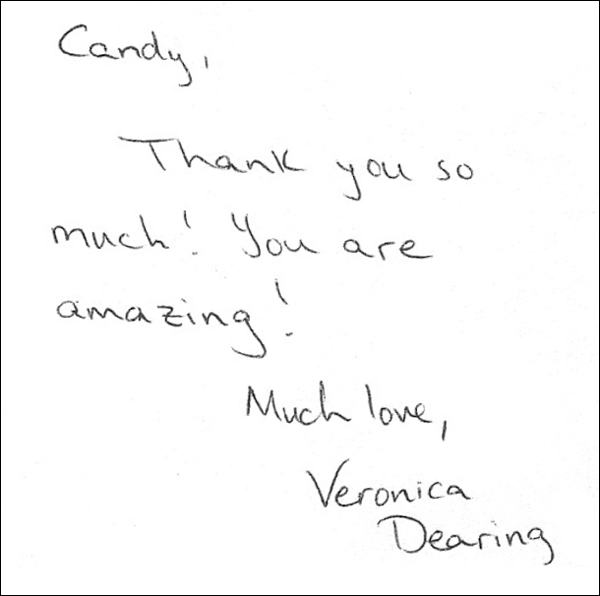 Candy,
Thank you so
much! You are
amazing!
Much love,
Veronica
Dearing